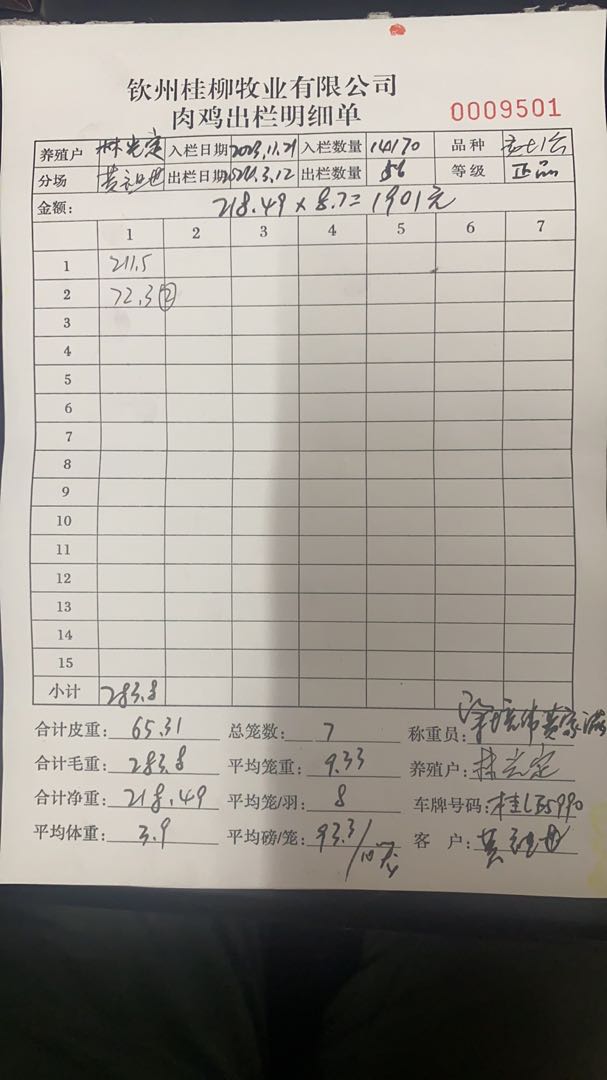 钦州桂柳牧业有限公司
肉鸡出栏明细单
0009501
养殖户 林光定 入栏日期 2023.11.21 入栏数量 14170 品种
分场 黄祖世 出栏日期 3.12 出栏数量 56 等级 正品
金额: 218.49 × 8.7 = 1901元
1 2 3 4 5 6 7
1 211.5
2 72.3 ②
3
4
5
6
7
8
9
10
11
12
13
14
15
小计 283.8
合计皮重: 65.31 总笼数: 7 称重员:
合计毛重: 283.8 平均笼重: 9.33 养殖户: 林光定
合计净重: 218.49 平均笼/羽: 8 车牌号码: 桂L35990
平均体重: 3.9 平均磅/笼: 93.31 客 户: 黄祖世